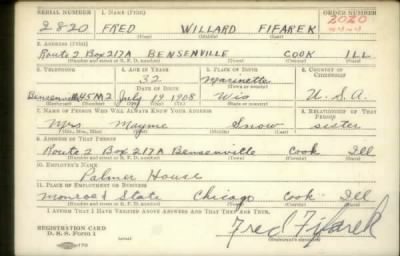 SERIAL NUMBER 1. NAME (Print) ORDER NUMBER
2820 FRED WILLARD FIFAREK 2020
(First) (Middle) (Last)
2. ADDRESS (Print)
Route 2 Box 217A BENSENVILLE COOK ILL
(Number and street or R. F. D. number) (Town) (County) (State)
3. TELEPHONE 4. AGE IN YEARS 5. PLACE OF BIRTH 6. COUNTRY OF CITIZENSHIP
32 Marinette
DATE OF BIRTH (Town or county)
Bensenville 45M2 July 19 1908 Wis U.S.A.
(Exchange) (Number) (Mo.) (Day) (Yr.) (State or country)
7. NAME OF PERSON WHO WILL ALWAYS KNOW YOUR ADDRESS 8. RELATIONSHIP OF THAT PERSON
Mrs Mayme Snow sister
(Mr., Mrs., Miss) (First) (Middle) (Last)
9. ADDRESS OF THAT PERSON
Route 2 Box 217A Bensenville Cook Ill
(Number and street or R. F. D. number) (Town) (County) (State)
10. EMPLOYER'S NAME
Palmer House
11. PLACE OF EMPLOYMENT OR BUSINESS
Monroe & State Chicago Cook Ill
(Number and street or R. F. D. number) (Town) (County) (State)
I AFFIRM THAT I HAVE VERIFIED ABOVE ANSWERS AND THAT THEY ARE TRUE.
REGISTRATION CARD
D. S. S. Form 1
Fred Fifarek
(Registrant's signature)